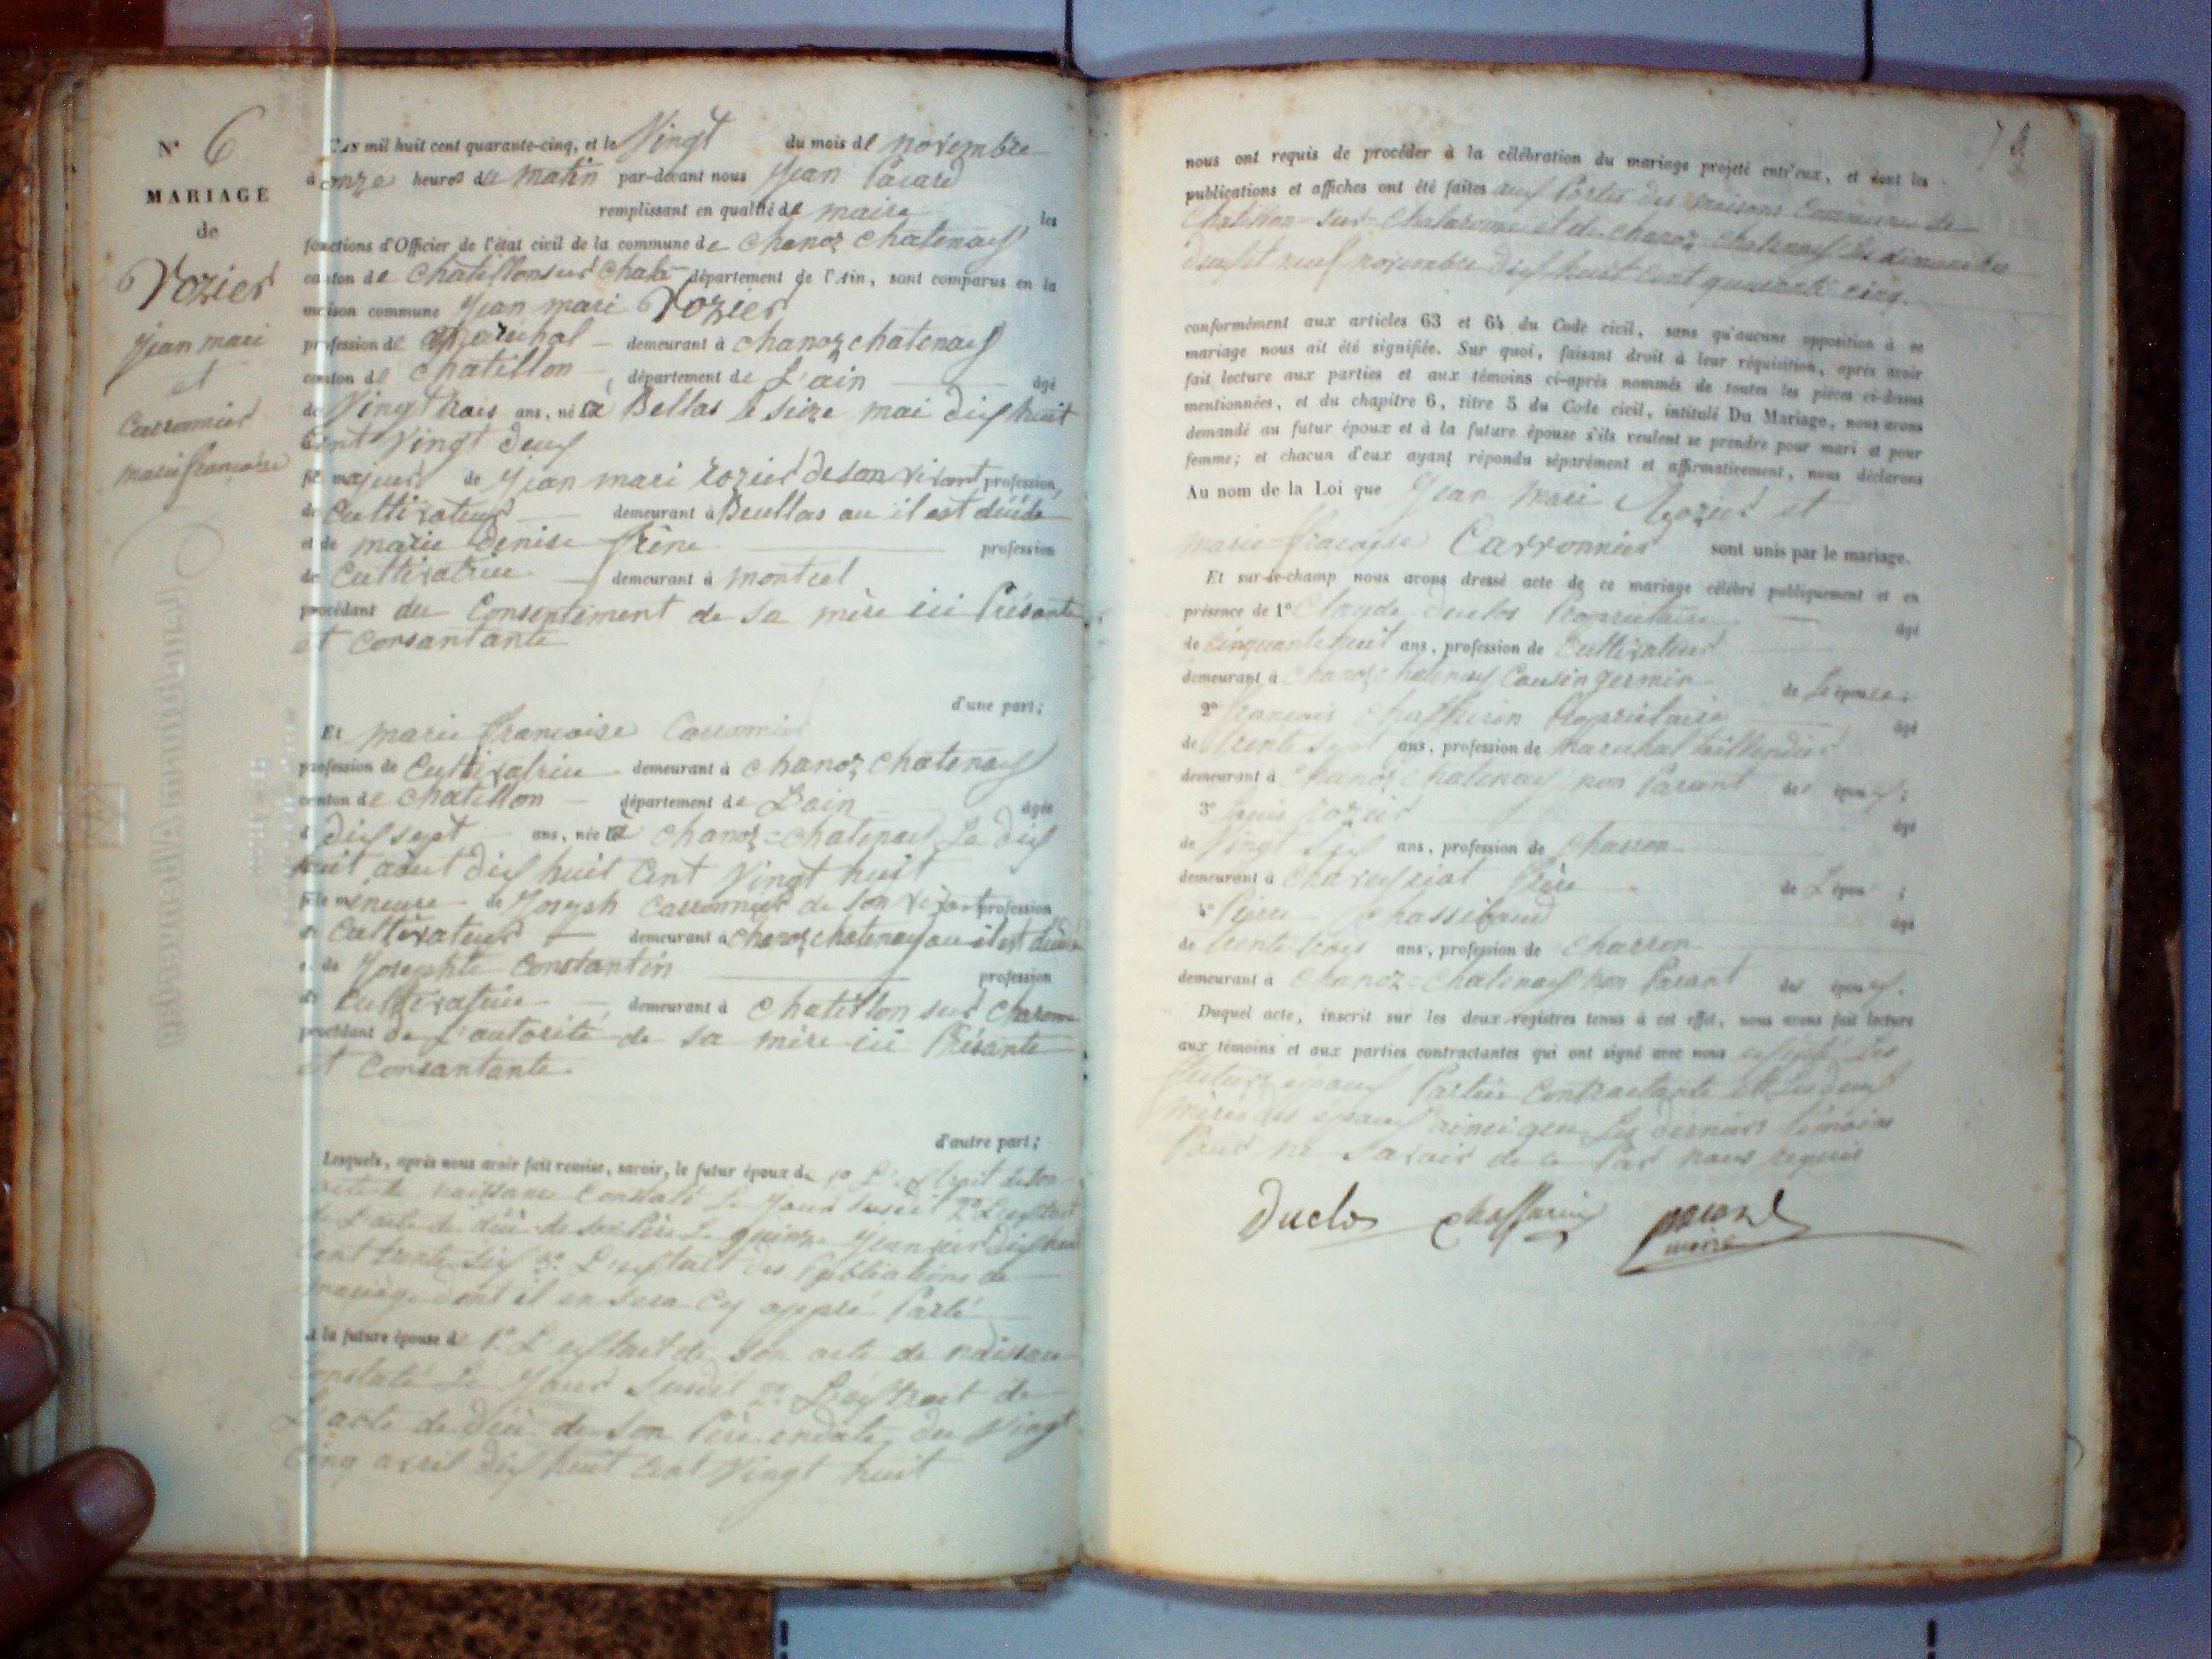 N° 6
MARIAGE
de
Rozier
Jean mari
et
Carronnier
marie françoise
L'an mil huit cent quarante-cinq, et le Vingt du mois de novembre
à onze heures du matin par-devant nous Jean Pacard
remplissant en qualité de maire les
fonctions d'Officier de l'état civil de la commune de chanoz chatenay
canton de chatillon sur chala département de l'Ain, sont comparus en la
maison commune Jean mari Rozier
profession de Maréchal demeurant à chanoz chatenay
canton de chatillon, département de L'ain âgé
de Vingt trois ans, né à Bellas le seize mai dix huit
Cent Vingt deux
fils majeur de Jean mari rozier de son vivant profession
de Cultivateur demeurant à Beullas ou il est décédé
et de marie denise frène profession
de Cultivatrice demeurant à montcel
procédant du Consentement de sa mère ici Présante
et Consantante
d'une part;
Et marie françoise Carronnier
profession de Cultivatrice demeurant à chanoz chatenay
canton de chatillon département de Lain âgée
de dix sept ans, née à chanoz=chatenay Le dix
huit aout dix huit Cent Vingt huit
fille mineure de Joseph Carronnier de son vivant profession
de Cultivateur demeurant à chanoz chatenay ou il est décédé
et de Josephte Constantin profession
de Cultivatrice, demeurant à chatillon sur charonne
procédant de L'autorité de sa mère ici Présante
et Consantante.
d'autre part;
Lesquels, après nous avoir fait remise, savoir, le futur époux de 1° L'extrait de son
acte de naissance Constaté Le Jour susdit 2° L'extrait
de L'acte de décè de son Père Le quinze Janvier dix huit
Cent trente six 3° L'extrait des Publications de
mariage dont il en sera Cy apprè Parlé
et la future épouse de 1° L'extrait de son acte de naissance
Constaté Le Jour susdit 2° L'extrait de
L'acte de décè de son Père endate du Vingt
Cinq avril dix huit Cent Vingt huit
nous ont requis de procéder à la célébration du mariage projeté entr'eux, et dont les
publications et affiches ont été faites aux Portes des maisons Commune de
Chatillon-sur-Chalaronne et de chanoz-chatenay les dimanches
deux et neuf novembre dix huit Cent quarante cinq.
conformément aux articles 63 et 64 du Code civil, sans qu'aucune opposition à ce
mariage nous ait été signifiée. Sur quoi, faisant droit à leur réquisition, après avoir
fait lecture aux parties et aux témoins ci-après nommés de toutes les pièces ci-dessus
mentionnées, et du chapitre 6, titre 5 du Code civil, intitulé Du Mariage, nous avons
demandé au futur époux et à la future épouse s'ils veulent se prendre pour mari et pour
femme; et chacun d'eux ayant répondu séparément et affirmativement, nous déclarons
Au nom de la Loi que Jean Mari Rozier et
marie=françoise Carronnier sont unis par le mariage.
Et sur-le-champ nous avons dressé acte de ce mariage célébré publiquement et en
présence de 1° Claude duclos Propriétaire âgé
de cinquante huit ans, profession de Cultivateur
demeurant à chanoz chatenay Cousin germin de L'épouse;
2° françois Propriétaire âgé
de trente sept ans, profession de Maréchal taillendier
demeurant à chanoz chatenay non Parant des époux;
3° Louis rozier âgé
de Vingt six ans, profession de Charron
demeurant à frère de L'époux;
4° Pierre âgé
de trente trois ans, profession de Charron
demeurant à chanoz=chatenay non Parant des époux.
Duquel acte, inscrit sur les deux registres tenus à cet effet, nous avons fait lecture
aux témoins et aux parties contractantes qui ont signé avec nous excepté Les
futurs époux Parties Contractante et Les deux
mères des époux ainsi que Les derniers témoins
Pour ne Savoir de ce Par nous requis
Duclos Chaffurin pacard
maire